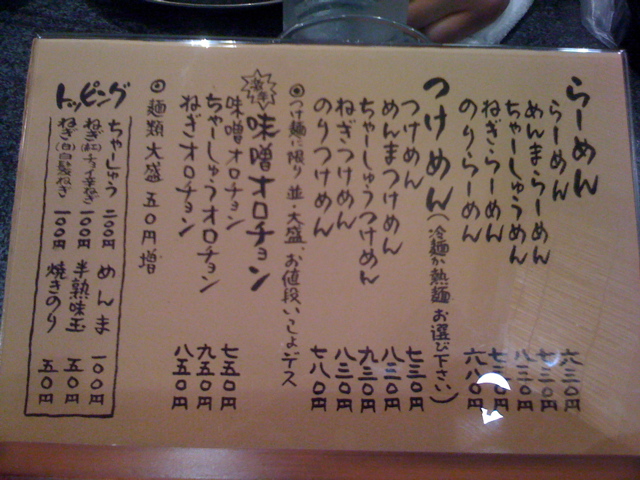 らーめん
らーめん 六三〇円
めんまらーめん 七三〇円
ちゃーしゅうめん 八三〇円
ねぎらーめん 七三〇円
のりらーめん 六八〇円
つけめん(冷麺か熱麺お選び下さい)
つけめん 七三〇円
めんまつけめん 八三〇円
ちゃーしゅうつけめん 九三〇円
ねぎつけめん 八三〇円
のりつけめん 七八〇円
◎つけ麺に限り並・大盛、お値段いっしょデス
激辛 味噌オロチョン
味噌オロチョン 七五〇円
ちゃーしゅうオロチョン 九五〇円
ねぎオロチョン 八五〇円
◎麺類大盛 五〇円増
トッピング
ちゃーしゅう 二〇〇円
ねぎ(紅)チョイ辛ねぎ 一〇〇円
ねぎ(白)白髪ねぎ 一〇〇円
めんま 一〇〇円
半熟味玉 五〇円
焼きのり 五〇円